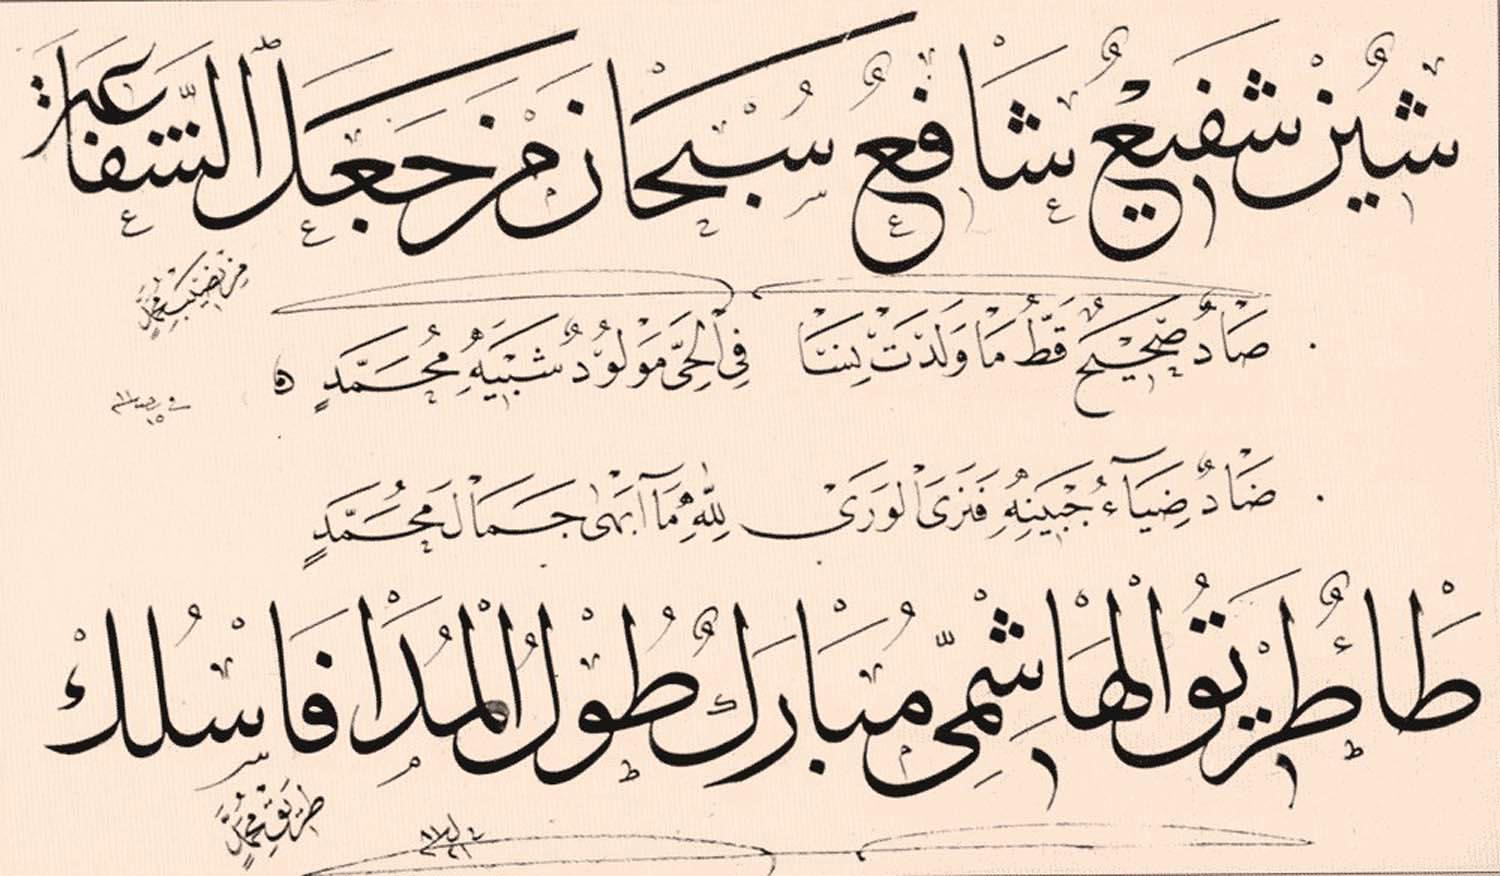 شين شفيع شافع سبحان من جعل الشفاعة
من نصيب محمد
صاد صحيح قط ما ولدت نسا في الحي مولود شبيه محمد
ضاد ضياء جبينه فتن الورى لله ما أبهى جمال محمد
طا طريق الهاشمي مبارك طول المدا فاسلك
طريق محمد